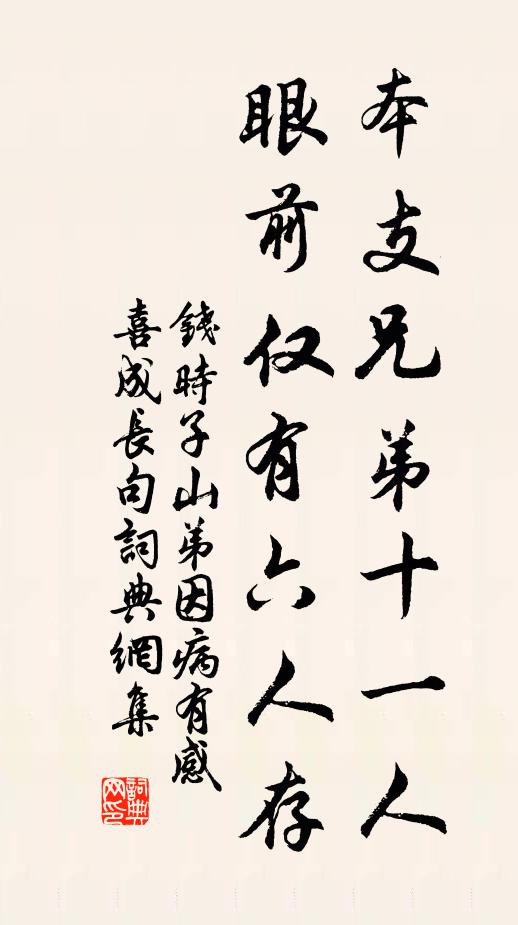 本支兄弟十一人
眼前仅有六人存
錢時子山弟因病有感
喜成長句詞典網集
詞典
网印